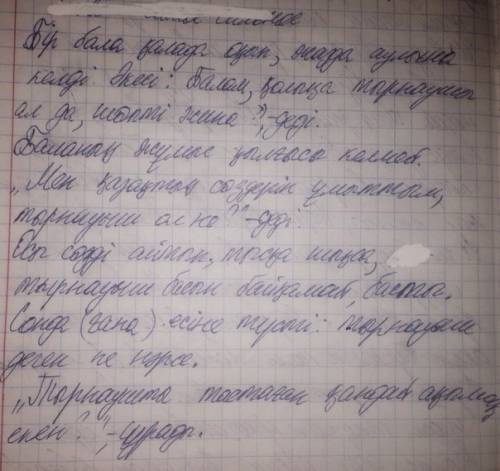 Бір бала қалада оқып, жаңа аулына
келді. Әкесі: Балам, қолыңа тырнауыш
ал да, шөпті жина?", -деді.
Баланың жұмыс қылғысы келмеб.
"Мен қазақтың сөздерін ұмыттым,
тырнауыш ол не?" -деді.
Осы сөзді айтып, тысқа шықса,
тырнауыш басын байқамай, басты.
Сонда (ғана) есіне түсті: тырнауыш
деген не нәрсе.
"Тырнауышты тастаған қандай ақымақ
екен?", -ұрады.